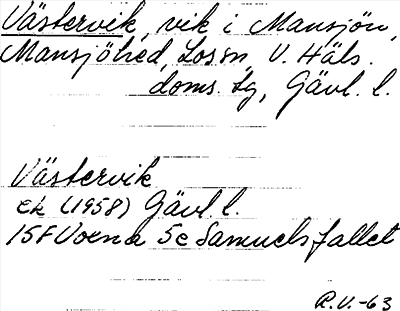 Västervik, vik i Mansjön,
Mansjöhed, Loss sn, V. Häls.
doms. tg, Gävl. l.
Västervik
Ek (1958) Gävl. l.
15F Voxna 5c Samuelsfallet
R.V.-63